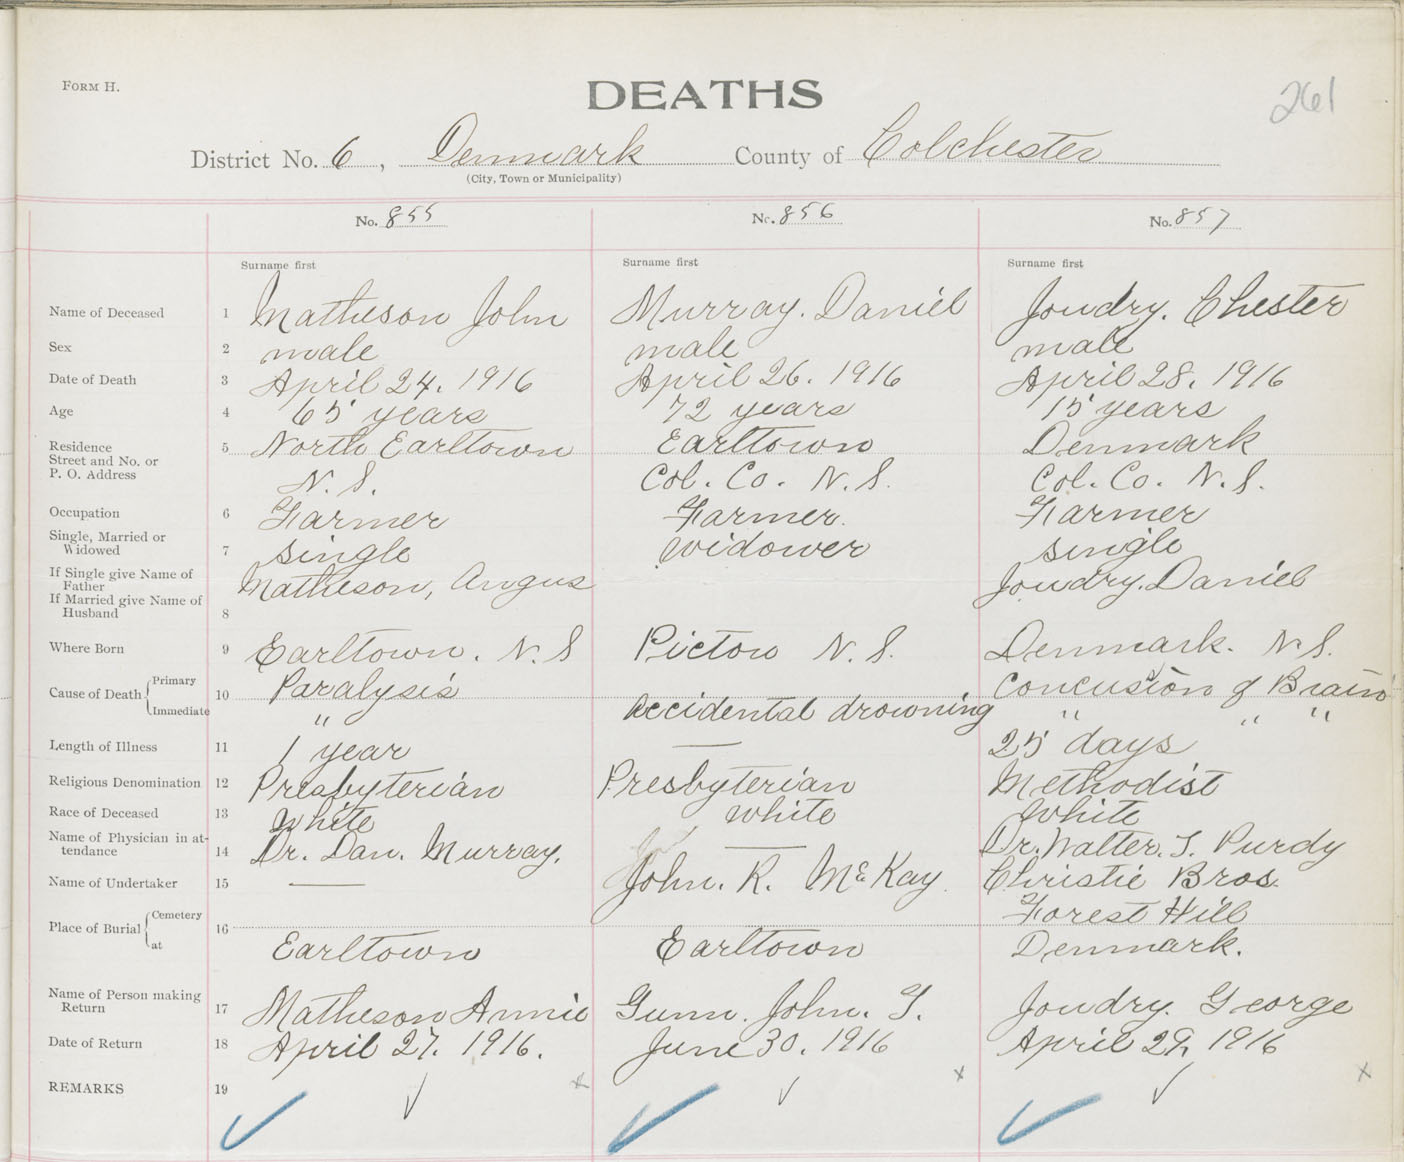 FORM H.
DEATHS
261
District No. 6, Denmark County of Colchester
(City, Town or Municipality)
No. 855 No. 856 No. 857
Surname first Surname first Surname first
Name of Deceased 1 Matheson John Murray. Daniel Joudry. Chester
Sex 2 male male male
Date of Death 3 April 24. 1916 April 26. 1916 April 28. 1916
Age 4 65 years 72 years 15 years
Residence 5 North Earltown Earltown Denmark
Street and No. or
P. O. Address N. S. Col. Co. N. S. Col. Co. N. S.
Occupation 6 Farmer Farmer. Farmer
Single, Married or
Widowed 7 single widower single
If Single give Name of
Father Matheson, Angus Joudry. Daniel
If Married give Name of
Husband 8
Where Born 9 Earltown. N. S Pictou N. S. Denmark. N. S.
Cause of Death Primary 10 Paralysis Accidental drowning Concusion of Brain
Immediate " " " "
Length of Illness 11 1 year — 25 days
Religious Denomination 12 Presbyterian Presbyterian Methodist
Race of Deceased 13 White White White
Name of Physician in at-
tendance 14 Dr. Dan. Murray. — Dr. Walter. T. Purdy
Name of Undertaker 15 — John. R. McKay. Christie Bros.
Place of Burial Cemetery 16 Forest Hill
at Earltown Earltown Denmark.
Name of Person making
Return 17 Matheson Annie Gunn. John. G. Joudry. George
Date of Return 18 April 27. 1916. June 30. 1916 April 29, 1916
REMARKS 19 ✓ x ✓ x ✓ x
✓ ✓ ✓